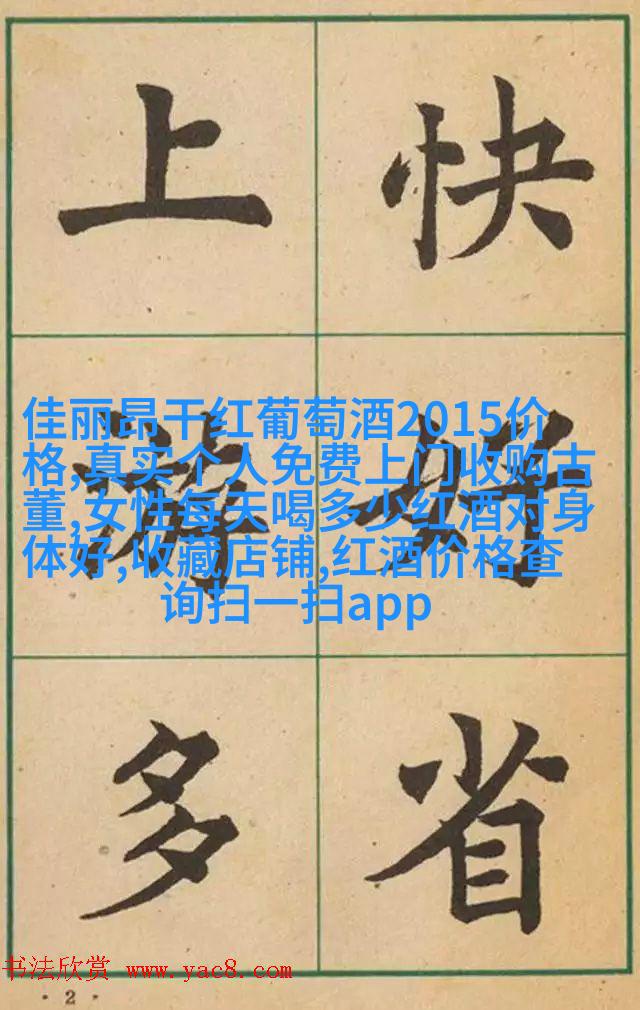 上
游
多
快
好
省
佳丽昂干红葡萄酒2015价
格,真实个人免费上门收购古
董,女性每天喝多少红酒对身
体好,收藏店铺,红酒价格查
询扫一扫app
书法欣赏 www.yac8.com
· 2 ·